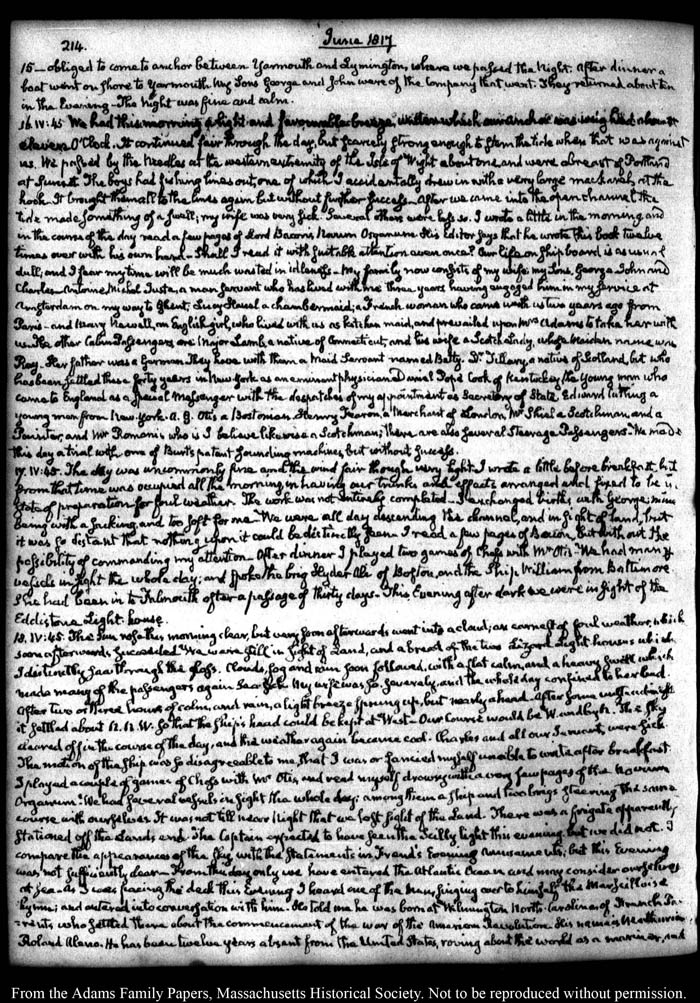 214.
June 1817
15 - obliged to come to anchor between Yarmouth and Lymington, where we passed the Night. After dinner a
boat went on shore to Yarmouth My Sons George and John were of the Company that went. They returned about ten
in the Evening - The Night was fine and calm.
16. IV:45. We had this morning a light and favourable breeze, with which our anchor was weighed about
eleven O'Clock. It continued fair through the day, but scarcely strong enough to stem the tide when that was against
us. We passed by the Needles at the western extremity of the Isle of Wight about one and were abreast of Portland
at Sunset. The boys had fishing lines out, one of which I accidentally drew in with a very large mackarel, at the
hook. It brought them all to the lines again but without further success. After we came into the open channel the
tide made something of a swell; my wife was very sick. Several others were less so. I wrote a little in the morning and
in the course of the day read a few pages of Lord Bacon's Novum Organum. His Editor says that he wrote this book twelve
times over with his own hand - Shall I read it with suitable attention even once? Our life on Ship board is as usual
dull, and I fear my time will be much wasted in idleness - My family now consists of my wife, my Sons, George, John and
Charles. Antoine Michel Giusta, a man servant who has lived with me three years having engaged him in my service at
Amsterdam on my way to Ghent; Lucy Hausel a chambermaid; a French woman who came with us two years ago from
Paris - and Mary Newell, an English girl, who lived with us as kitchen maid, and prevailed upon Mrs Adams to take her with
us. The other Cabin Passengers are Major Lamb, a native of Connecticut, and his wife a Scotch Lady, whose maiden name was
Roy. Her father was a German. They have with them a Maid Servant named Betty. Dr. Tillary, a native of Scotland, but who
has been settled these forty years in New York as an eminent physician Daniel Pope Cook of Kentucky the Young man who
came to England as a Special Messenger with the despatches of my appointment as Secretary of State Edward a
young man from New York. A. G. Otis a Bostonian Henry Fearon, a Merchant of London, Mr Shiel a Scotchman, and a
Painter, and Mr Romanis who is I believe likewise a Scotchman; there are also several Steerage Passengers - We made
this day a trial with one of Burt's patent sounding machines, but without success.
17. IV:45. The day was uncommonly fine and the wind fair though very light. I wrote a little before breakfast, but
from that time was occupied all the morning in having our trunks and effects arranged and fixed to be in a
state of preparation for foul weather. The work was not entirely completed - I exchanged births with George; mine
being with a sacking, and too soft for me - We were all day descending the channel, and in sight of land, but
it was so distant that nothing upon it could be distinctly seen. I read a few pages of Bacon, but without the
possibility of commanding my attention. After dinner I played two games of Chess with Mr Otis - We had many
vessels in sight the whole day; and spoke the brig Hyder Ale of Boston, and the Ship William from Baltimore
She had been in to Falmouth after a passage of thirty days - This Evening after dark we were in sight of the
Eddistone Light-house.
18. IV:45. The Sun rose this morning clear, but very soon afterwards went into a cloud; an earnest of foul weather, which
soon afterwards succeeded. We were still in sight of Land, and abreast of the two Lizard Light houses which
I distinctly saw through the glass. Clouds, fog and rain soon followed, with a flat calm, and a heavy swell which
made many of the passengers again Sea sick. My wife was so severely, and the whole day confined to her bed.
After two or three hours of calm, and rain, a light breeze sprung up, but nearly ahead. After some
it settled about N.N.W. so that the Ship's head could be kept at West - Our Course would be W. and by S. The Sky
cleared off in the course of the day; and the weather again became cool. Charles and all our Servants, were sick
The motion of the Ship was so disagreeable to me, that I was or fancied myself unable to write after breakfast.
I played a couple of games of Chess with Mr Otis, and read myself drowsy with a very few pages of the Novum
Organum. We had several vessels in sight the whole day; among them a Ship and two brigs steering the same
course with ourselves. It was not till near Night that we lost sight of the Land. There was a frigate apparently
stationed off the Lands end. The Captain expected to have seen the Scilly light this evening, but we did not. I
compared the appearances of the Sky, with the statements in Frend's Evening Amusements; but this Evening
was not sufficiently clear - From this day only we have entered the Atlantic Ocean and may consider ourselves
at sea - As I was pacing the deck this Evening I heard one of the Men singing over to himself the Marseilloise
hymn; and entered into conversation with him. He told me he was born at Wilmington North-Carolina of French Pa-
rents who settled there about the commencement of the war of the American Revolution. His name is
Roland Alano. He has been twelve years absent from the United States, roving about the world as a mariner, and
From the Adams Family Papers, Massachusetts Historical Society. Not to be reproduced without permission.